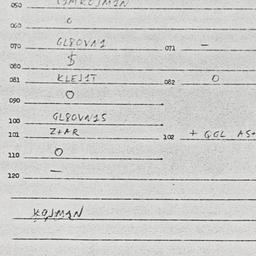 050
060 0
070 GL80VN1 071 -
080 $
081 KLEJ1T 082 0
090 0
100 GL80VN1S
101 Z+AR 102 + GGL AS+
110 0
120 —
KOJMAN